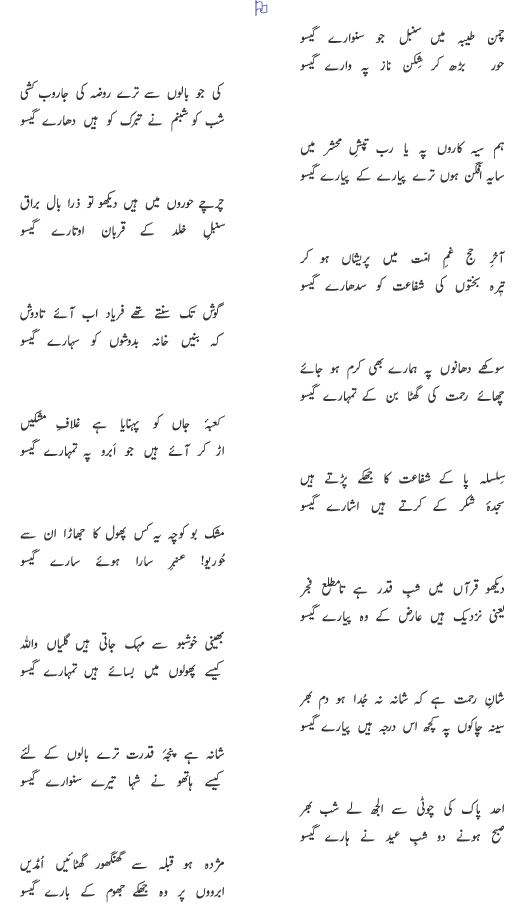 چمن طیبہ میں سنبل جو سنوارے گیسو
حور بڑھ کر شِکنِ ناز پہ وارے گیسو
کی جو بالوں سے ترے روضہ کی جاروب کشی
شب کو شبنم نے تبرک کو ہیں دھارے گیسو
ہم سیہ کاروں پہ یا رب تپشِ محشر میں
سایہ افگن ہوں ترے پیارے کے پیارے گیسو
چرچے حوروں میں ہیں دیکھو تو ذرا بال براق
سنبلِ خلد کے قربان اوتارے گیسو
آخرِ حج غمِ امّت میں پریشاں ہو کر
تیرہ بختوں کی شفاعت کو سدھارے گیسو
گوش تک سنتے تھے فریاد اب آئے تادوش
کہ بنیں خانہ بدوشوں کو سہارے گیسو
سوکھے دھانوں پہ ہمارے بھی کرم ہو جائے
چھائے رحمت کی گھٹا بن کے تمہارے گیسو
کعبۂ جاں کو پہنایا ہے غلافِ مشکیں
اڑ کر آئے ہیں جو اَبرو پہ تمہارے گیسو
سِلسلہ پا کے شفاعت کا جھکے پڑتے ہیں
سجدۂ شکر کے کرتے ہیں اشارے گیسو
مشک بو کوچہ یہ کس پھول کا جھاڑا ان سے
حُوریو! عنبرِ سارا ہوئے سارے گیسو
دیکھو قرآں میں شبِ قدر ہے تا مطلعِ فجر
یعنی نزدیک ہیں عارض کے وہ پیارے گیسو
بھینی خوشبو سے مہک جاتی ہیں گلیاں واللہ
کیسے پھولوں میں بسائے ہیں تمہارے گیسو
شانِ رحمت ہے کہ شانہ نہ جُدا ہو دم بھر
سینہ چاکوں پہ کچھ اس درجہ ہیں پیارے گیسو
شانہ ہے پنجۂ قدرت ترے بالوں کے لئے
کیسے ہاتھو نے شہا تیرے سنوارے گیسو
احد پاک کی چوٹی سے الجھ لے شب بھر
صبح ہونے دو شبِ عید نے ہارے گیسو
مژدہ ہو قبلہ سے گھنگھور گھٹائیں اُمڈیں
ابرووں پر وہ جھکے جھوم کے بارے گیسو